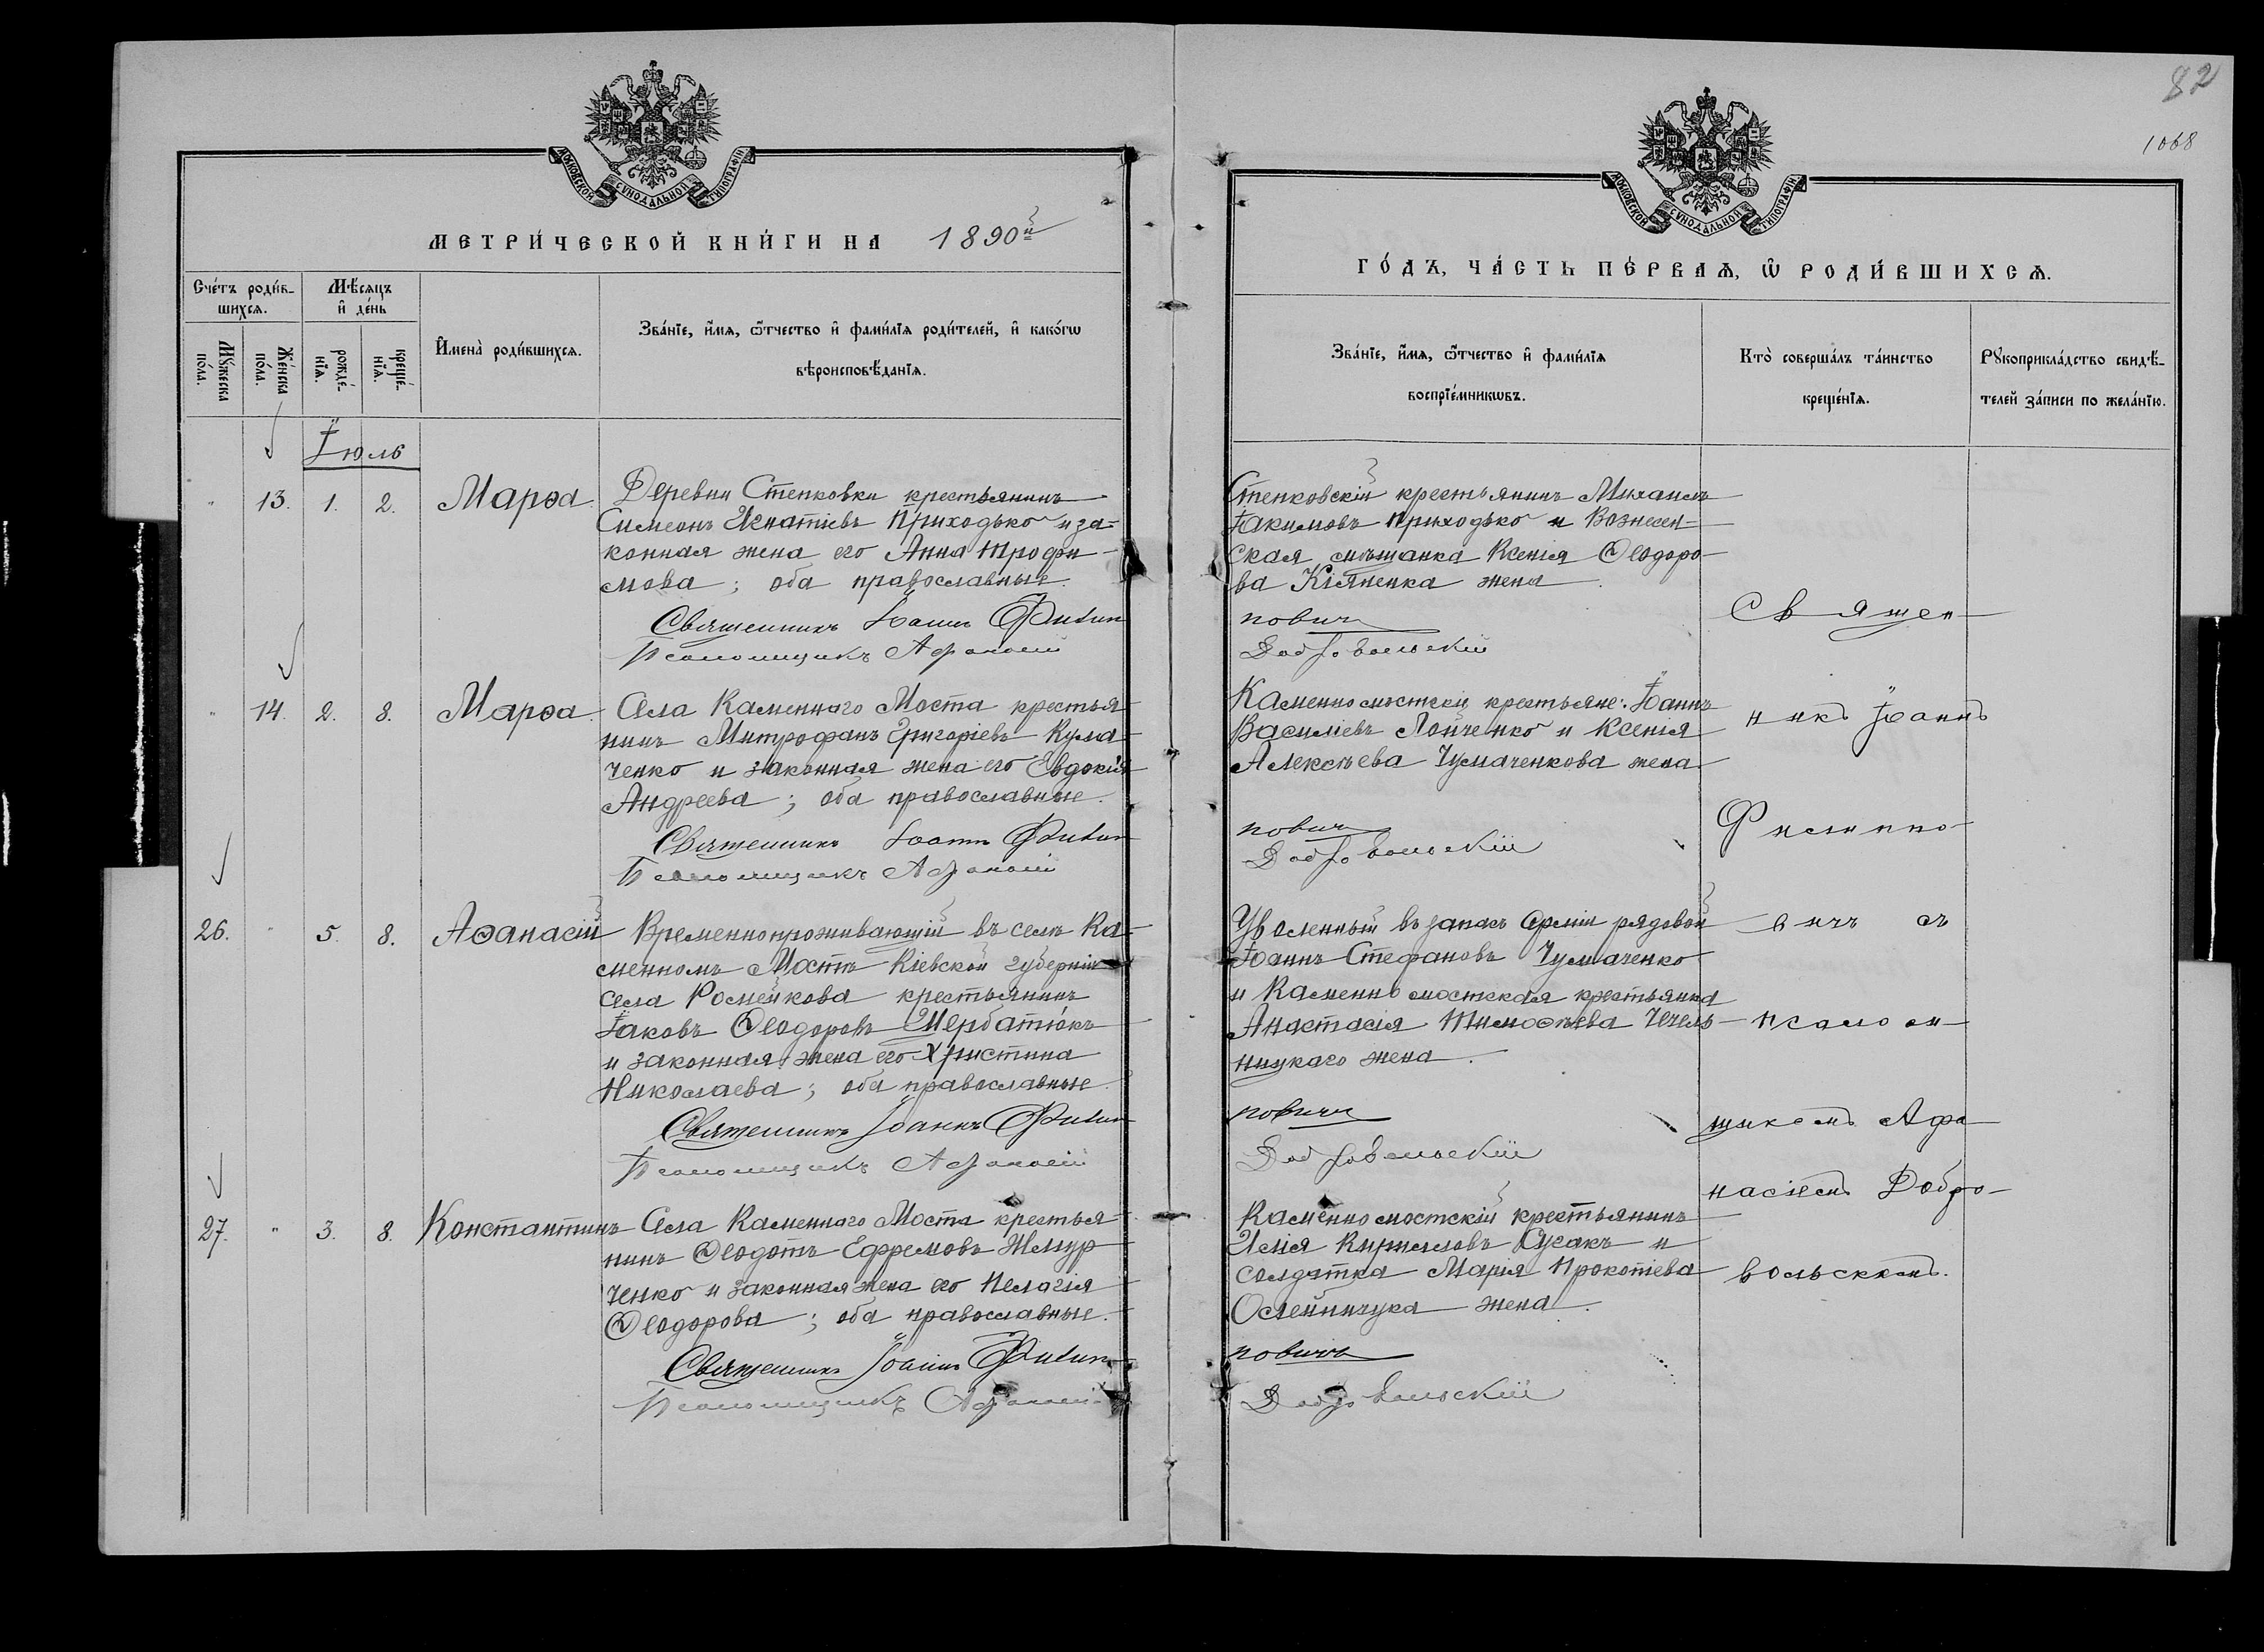 82
1068
МОСКОВСКОЙ СѴНОДАЛЬНОЙ ТИПОГРАФІИ
МЕТРИ́ЧЕСКОЙ КНИ́ГИ НА 1890й
Сче́тъ роди́в-
шихсѧ.
Мѣ́сѧцъ
и҆ де́нь
Мꙋ́жеска
по́ла.
Же́нска
по́ла.
рожде́-
нїѧ.
креще́-
нїѧ.
И҆мена̀ роди́вшихсѧ.
Зва́нїе, и҆́мѧ, ѻ҆́тчество и҆ фами́лїѧ роди́телей, и҆ како́гѡ
вѣроисповѣ́данїѧ.
Іюль
13. 1. 2. Марѳа
Деревни Степковки крестьянинъ
Симеонъ Игнатіевъ Приходько и за-
конная жена его Анна Трофи-
мова; оба православные.
Священникъ Іоаннъ Филип
Псаломщикъ Афанасій
14. 2. 8. Марѳа.
Села Каменнаго Моста крестья-
нинъ Митрофанъ Григоріевъ Кума-
ченко и законная жена его Евдокія
Андреева; оба православные.
Священникъ Іоаннъ Филип
Псаломщикъ Афанасій
26. 5. 8. Аѳанасій
Временнопроживающій въ селѣ Ка-
менномъ Мостѣ Кіевской губерніи
села Ромейкова крестьянинъ
Іаковъ Ѳеодоровъ Щербатюкъ
и законная жена его Христина
Николаева; оба православные.
Священникъ Іоаннъ Филип
Псаломщикъ Афанасій
27. 3. 8. Константинъ
Села Каменнаго Моста крестья-
нинъ Ѳеодотъ Ефремовъ Жмур-
ченко и законная жена его Пелагія
Ѳеодорова; оба православные.
Священникъ Іоаннъ Филип
Псаломщикъ Афанасій
МОСКОВСКОЙ СѴНОДАЛЬНОЙ ТИПОГРАФІИ
ГО́ДЪ, ЧА́СТЬ ПЕ́РВАѦ, Ѡ҆ РОДИ́ВШИХСѦ.
Зва́нїе, и҆́мѧ, ѻ҆́тчество и҆ фами́лїѧ
воспрїе́мникѡвъ.
Кто̀ соверша́лъ та́инство
креще́нїѧ.
Рꙋкоприкла́дство свидѣ́-
телей за́писи по жела́нїю.
Степковскій крестьянинъ Михаилъ
Іакимовъ Приходько и Вознесен-
ская мѣщанка Ксенія Ѳеодоро-
ва Кіяненка жена.
пович
Добровольскій
Каменномостскіи крестьяне: Іоаннъ
Василіевъ Лонченко и Ксенія
Алексѣева Чумаченкова жена
пович
Добровольскій
Уволенный въ запасъ арміи рядовой
Іоаннъ Стефановъ Чумаченко
и Каменномостская крестьянка
Анастасія Тимоѳѣева Чечель-
ницкаго жена.
пович
Добровольскій
Каменномостскій крестьянинъ
Илія Кирилловъ Сусакъ и
солдатка Марія Прокопіева
Олейничука жена.
повичъ
Добровольскій
Священ-
никъ Іоаннъ
Филиппо-
вичъ съ
псалом-
щикомъ Афа-
насіемъ Добро-
вольскимъ.